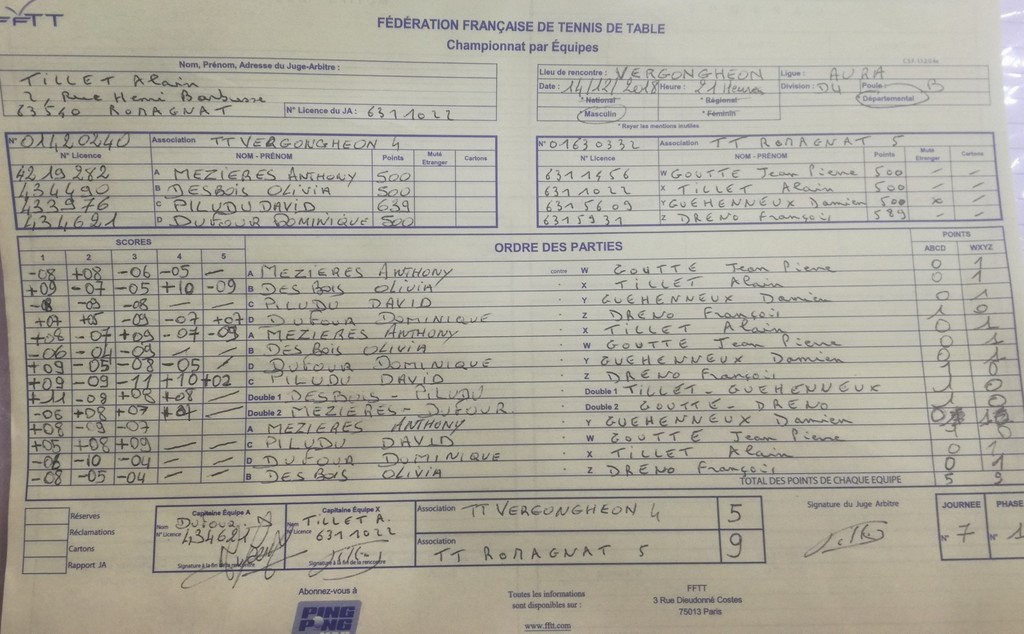 FFTT
FÉDÉRATION FRANÇAISE DE TENNIS DE TABLE
Championnat par Équipes
Nom, Prénom, Adresse du Juge-Arbitre :
TILLET Alain
2, Rue Henri Barbusse
63540 ROMAGNAT N° Licence du JA : 6311022
Lieu de rencontre : VERGONGHEON Ligue : AURA
Date : 14/12/2018 Heure : 21 Heures Division : D4 Poule : B
* National * Régional Départemental
Masculin * Féminin
* Rayer les mentions inutiles
N° 01420240 Association TT VERGONGHEON 4
N° Licence NOM - PRÉNOM Points Muté Etranger Cartons
4219282 A MEZIERES ANTHONY 500
434490 B DESBOIS OLIVIA 500
433976 C PILUDU DAVID 639
434621 D DUFOUR DOMINIQUE 500
N° 01630332 Association TT ROMAGNAT 5
N° Licence NOM - PRÉNOM Points Muté Etranger Cartons
6311456 W GOUTTE Jean Pierre 500 – –
6311022 X TILLET Alain 500 – –
6315609 Y GUEHENNEUX Damien 500 x –
6315931 Z DRENO François 589 – –
SCORES ORDRE DES PARTIES POINTS
1 2 3 4 5 ABCD WXYZ
-08 +08 -06 -05 – A MEZIERES ANTHONY contre W GOUTTE Jean Pierre 0 1
+09 -07 -05 +10 -09 B DESBOIS OLIVIA X TILLET Alain 0 1
-08 -09 -08 – – C PILUDU DAVID Y GUEHENNEUX Damien 0 1
+07 +05 -09 -07 +07 D DUFOUR DOMINIQUE Z DRENO François 1 0
+08 -07 +09 -07 -09 A MEZIERES ANTHONY X TILLET Alain 0 1
-06 -04 -09 – – B DESBOIS OLIVIA W GOUTTE Jean Pierre 0 1
+09 -05 -08 -05 – D DUFOUR DOMINIQUE Y GUEHENNEUX Damien 0 1
+09 -09 -11 +10 +02 C PILUDU DAVID Z DRENO François 1 0
+11 -09 +08 +08 – Double 1 DESBOIS - PILUDU Double 1 TILLET - GUEHENNEUX 1 0
-06 +08 +07 – Double 2 MEZIERES - DUFOUR Double 2 GOUTTE - DRENO 1 0
+08 -09 -07 A MEZIERES ANTHONY Y GUEHENNEUX Damien 0 1
+05 +08 +09 – – C PILUDU DAVID W GOUTTE Jean Pierre 0
-06 -10 -04 – – D DUFOUR DOMINIQUE X TILLET Alain 0 1
-08 -05 -04 – – B DESBOIS OLIVIA Z DRENO François 0 1
TOTAL DES POINTS DE CHAQUE EQUIPE 5 9
Réserves
Réclamations
Cartons
Rapport JA
Capitaine Équipe A
Nom DUFOUR. D
N° Licence 434621
Signature à la fin de la rencontre
Capitaine Équipe X
Nom TILLET A.
Licence 6311022
Signature à la fin de la rencontre
Association TT VERGONGHEON 4 5
Association TT ROMAGNAT 5 9
Signature du Juge Arbitre
JOURNEE PHASE
N° 7 N° 1
Abonnez-vous à
PING PONG
Toutes les informations
sont disponibles sur :
www.fftt.com
FFTT
3 Rue Dieudonné Costes
75013 Paris